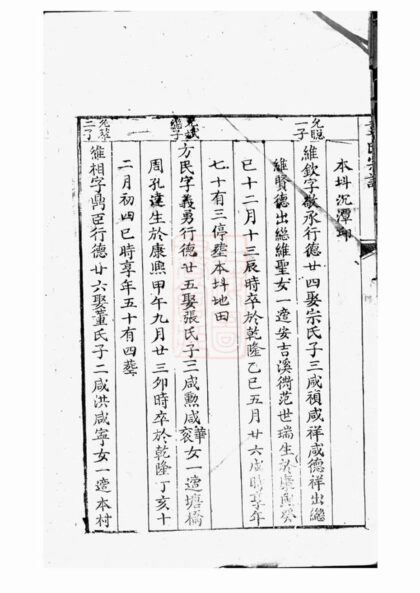 允聰一子
本沉潭
維欽字敬承行德廿四娶宗氏子三咸禎咸祥咸德祥出繼
維賢德出繼維聖女一適安吉溪衖范世瑞生於康熙癸
巳十二月十三辰時卒於乾隆乙巳五月廿六戌時享年
七十有三停本地田
繼子
方民字義勇行德廿五娶張氏子三咸勲咸咸華女一適塘橋
周孔達生於康熙甲午九月廿三卯時卒於乾隆丁亥十
二月初四巳時享年五十有四葬
二子
維相字鼎臣行德廿六娶董氏子二咸洪咸寧女一適本村